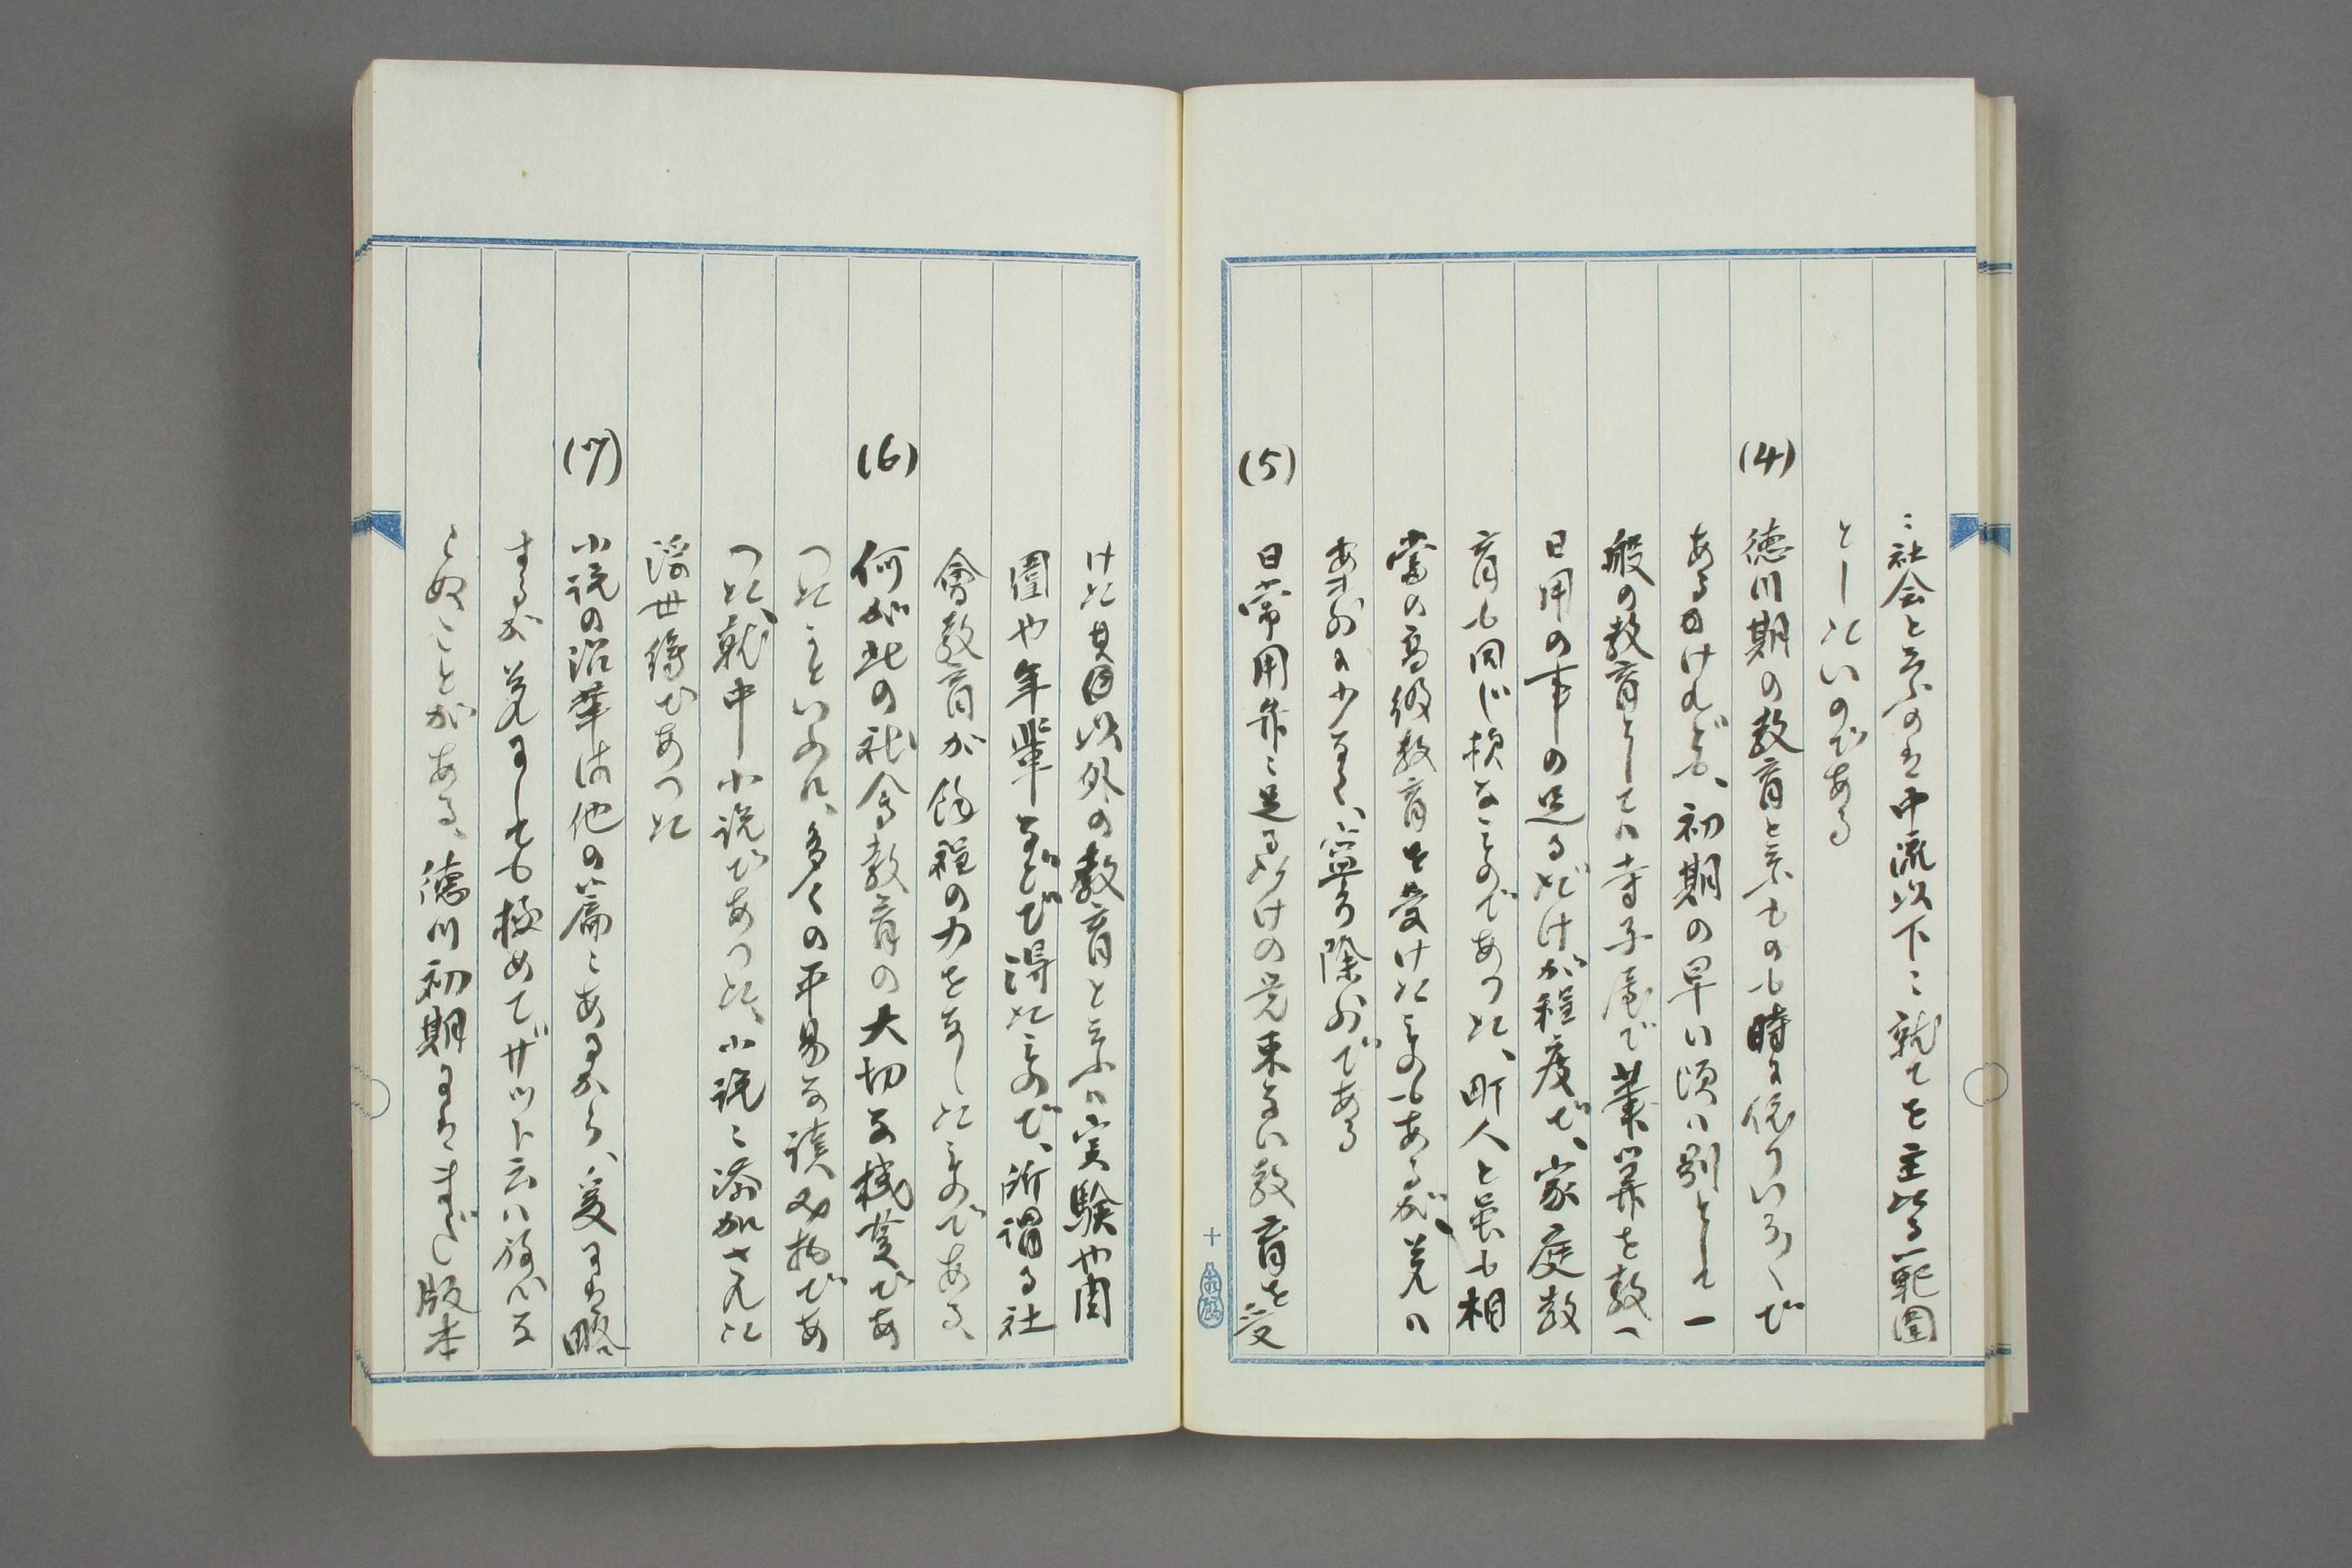 ニ社会と云ふのは中流以下ニ就てを主なる範囲
としたいのである
(4) 徳川期の教育と云ふものも時に依りいろ〱で
あるわけれども、初期の早い頃ハ別として一
般の教育としてハ寺子屋で筆算を教へ
日用の事の足るだけが程度で、家庭教
育も同じ様なものであつた、町人と雖も相
當の高級教育を受けたものもあるが、夫ハ
あまりに少なく、寧ろ除外である
(5) 日常用弁ニ足るだけの覚束ない教育を受
十
けた其以外の教育と云ふハ実験や周
圍や年輩などで得たもので、所謂る社
會教育が餘程の力をなしたものである、
(6) 何が此の社会教育の大切な機関であ
つたかといふに、多くの平易な読み物であ
つた、就中小説であつた、小説ニ添加された
浮世繪であつた
(7) 小説の沿革は他の篇ニあるから、爰には略
するが夫にしても極めてザツト云ハねバな
らぬことがある、徳川初期にはまだ版本